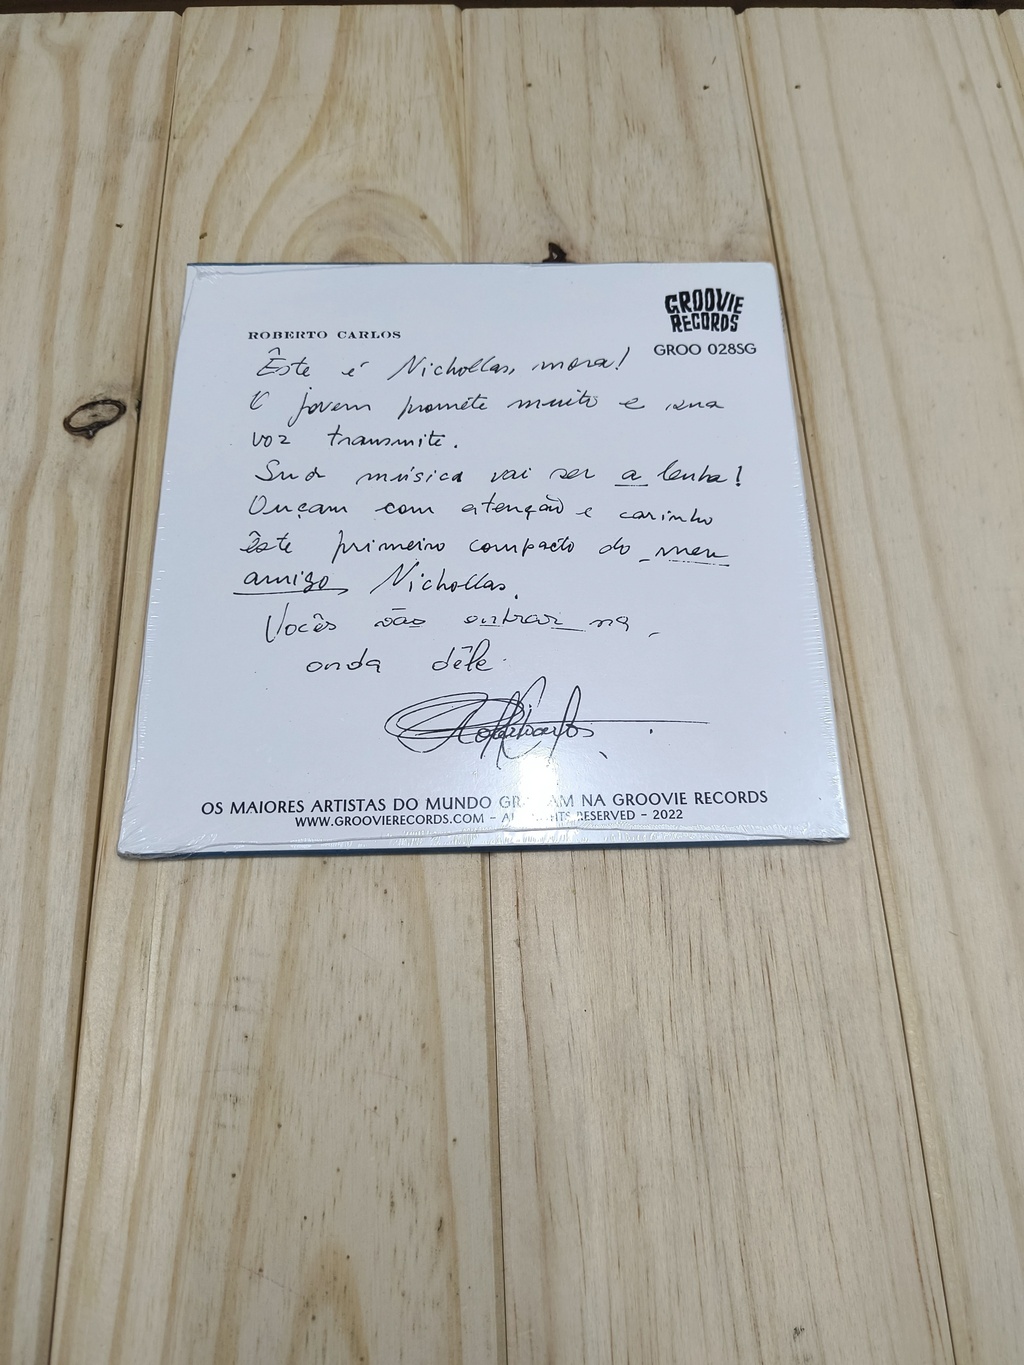 GROOVIE
RECORDS
GROO 028SG
ROBERTO CARLOS
Êste é Nichollas, mora!
O jovem promete muito e sua
voz transmite.
Sua música vai ser a lenha!
Ouçam com atenção e carinho
êste primeiro compacto do meu
amigo, Nichollas.
Vocês vão entrar na
onda dêle.
OS MAIORES ARTISTAS DO MUNDO GRAVAM NA GROOVIE RECORDS
WWW.GROOVIERECORDS.COM - ALL RIGHTS RESERVED - 2022